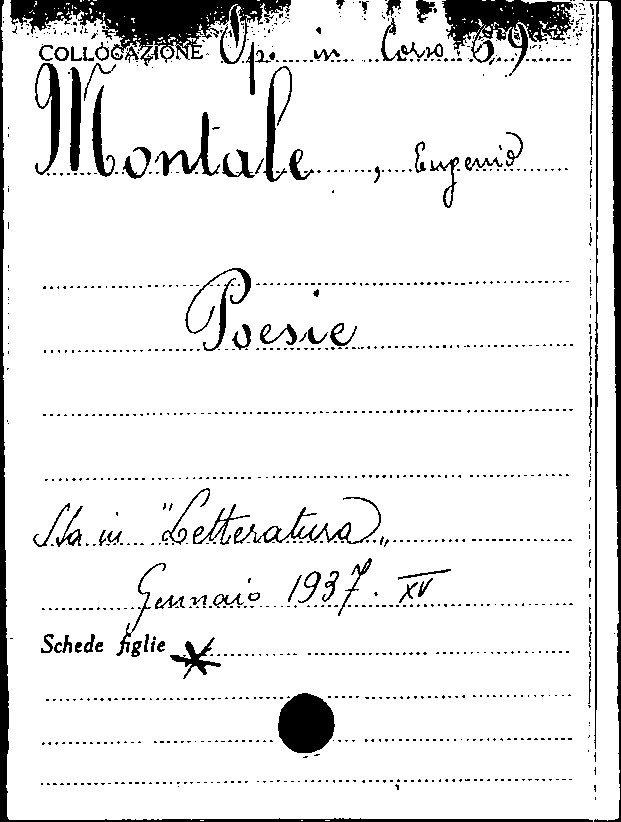 COLLOCAZIONE Op. in Corso 69
Montale, Eugenio
Poesie
Sta in "Letteratura„
Gennaio 1937. XV
Schede figlie